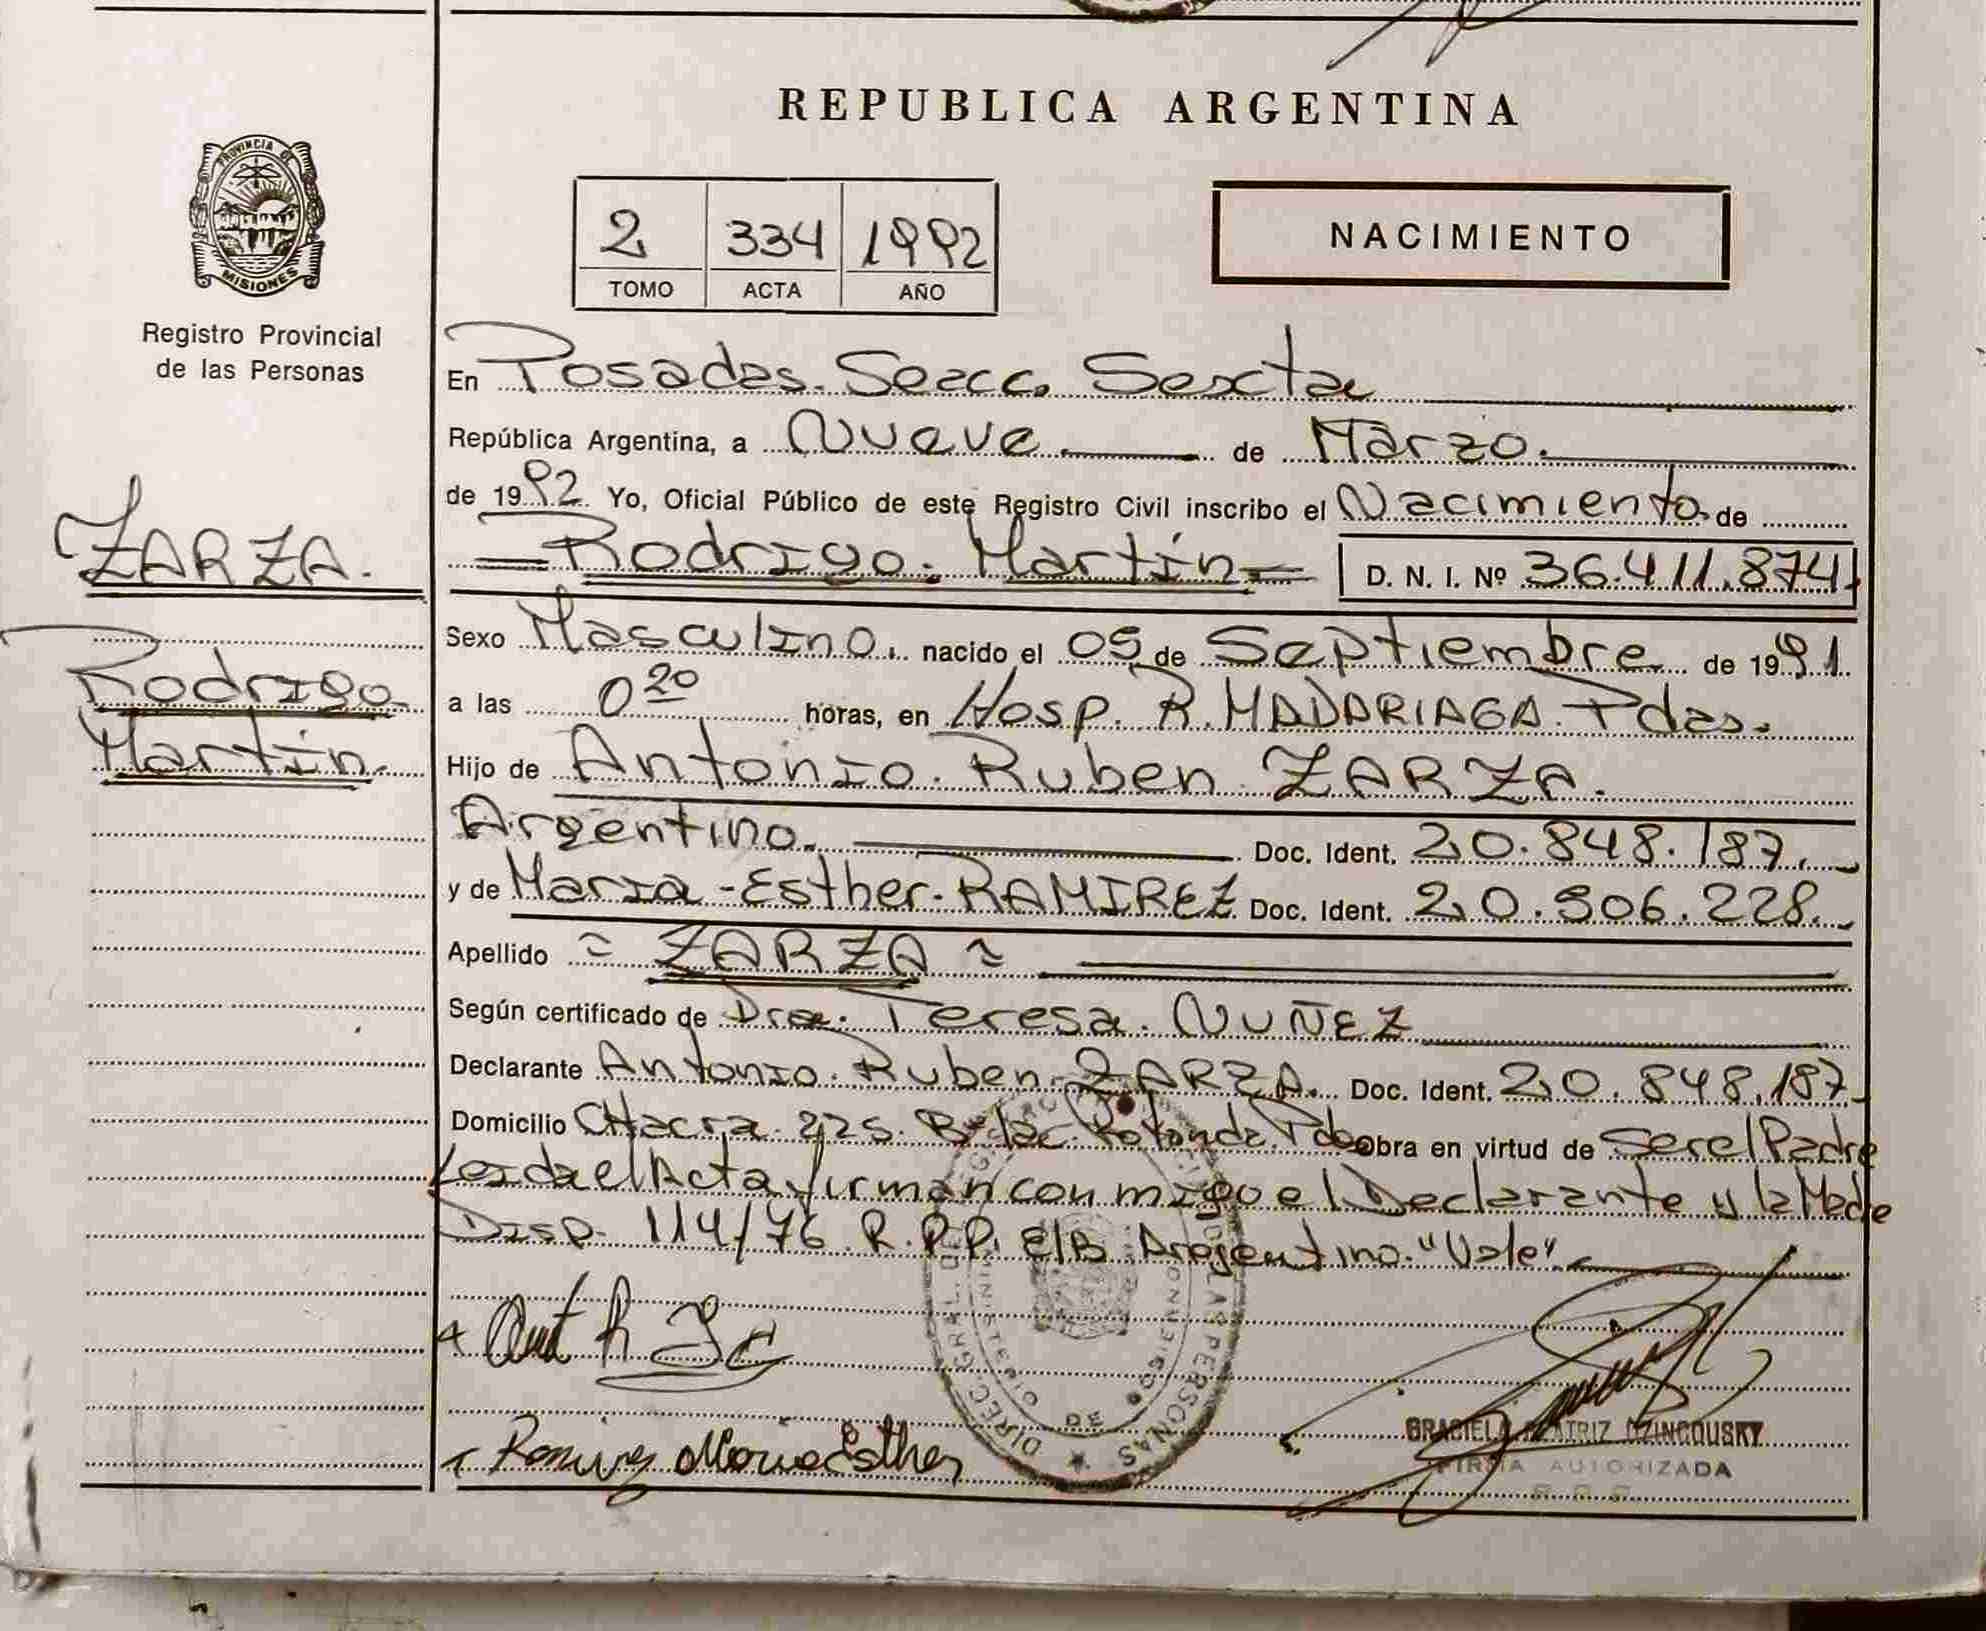 REPUBLICA ARGENTINA
PROVINCIA DE
MISIONES
Registro Provincial
de las Personas
2 334 1992
TOMO ACTA AÑO
NACIMIENTO
ZARZA.
Rodrigo
Martín.
En Posadas. Secc. Sexta
República Argentina, a Nueve de Marzo.
de 1992 Yo, Oficial Público de este Registro Civil inscribo el Nacimiento de
Rodrigo. Martín D. N. I. Nº 36.411.874
Sexo Masculino, nacido el 05 de Septiembre de 1991.
a las 0 20 horas, en Hosp. R. MADARIAGA. Pdas.
Hijo de Antonio. Ruben ZARZA.
Argentino. Doc. Ident. 20.848.187.
y de Maria - Esther. RAMIREZ Doc. Ident. 20.906.228.
Apellido = ZARZA =
Según certificado de Dra. Teresa. NUÑEZ
Declarante Antonio. Ruben. ZARZA. Doc. Ident. 20.848.187
Domicilio Chacra. 225. Rotonda. Obra en virtud de Ser el Padre
Leida el Acta firman con migo el Declarante y la Made
Disp. 114/76 R.P.P. E/B Aregentino. "Vale".
Ant R
Ramirez Maria Esther
DIREC. GRAL. DE LAS PERSONAS
MINISTERIO DE GOBIERNO
GRACIELA BEATRIZ OZINCOUSKY
FIRMA AUTORIZADA